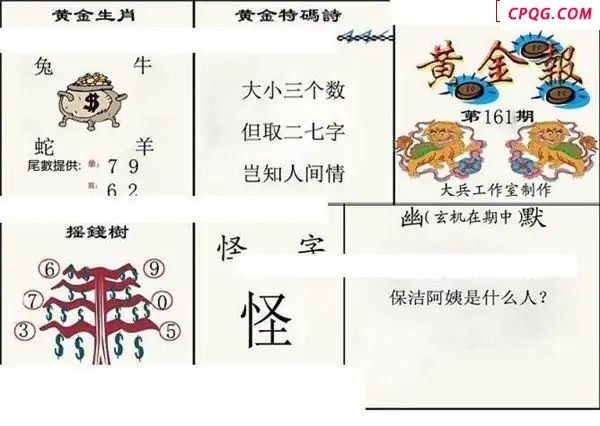 CPQG.COM
黄金生肖
兔 牛
$
蛇 羊
尾數提供：單：7 9
双：6 2
黄金特碼詩
大小三个数
但取二七字
岂知人间情
黄金報
第161期
大兵工作室制作
摇錢樹
6 9
7 0
3 5
怪 字
怪
幽(玄机在期中)默
保洁阿姨是什么人?